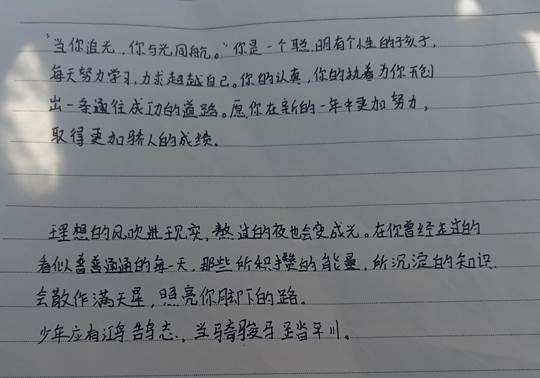 “当你追光,你与光同航。”你是一个聪明有个性的孩子,
每天努力学习,力求超越自己。你的认真,你的执着为你开创
出一条通往成功的道路。愿你在新的一年中更加努力,
取得更加骄人的成绩。
理想的风吹进现实,熬过的夜也会变成光。在你曾经走过的
看似普普通通的每一天,那些所积攒的能量,所沉淀的知识
会散作满天星,照亮你脚下的路。
少年应有鸿鹄志,当骑骏马踏平川。